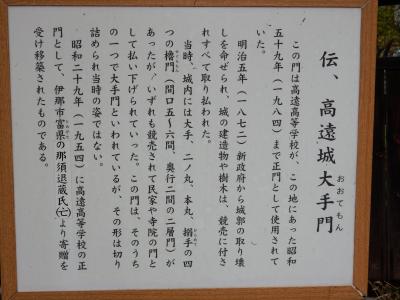 伝、高遠城大手門
おおてもん
この門は高遠高等学校が、この地にあった昭和
五十九年（一九八四）まで正門として使用されて
いた。
明治五年（一八七二）新政府から城郭の取り壊
しを命ぜられ、城の建造物や樹木は、競売に付さ
れすべて取り払われた。
当時、城内には大手、二ノ丸、本丸、搦手の四
つの櫓門（間口五～六間、奥行二間の二層門）が
あったが、いずれも競売されて民家や寺院の門と
して払い下げられていった。この門は、そのうち
の一つで大手門といわれているが、その形は切り
詰められ当時の姿ではない。
昭和二十九年（一九五四）に高遠高等学校の正
門として、伊那市富県の那須退蔵氏（亡）より寄贈を
受け移築されたものである。